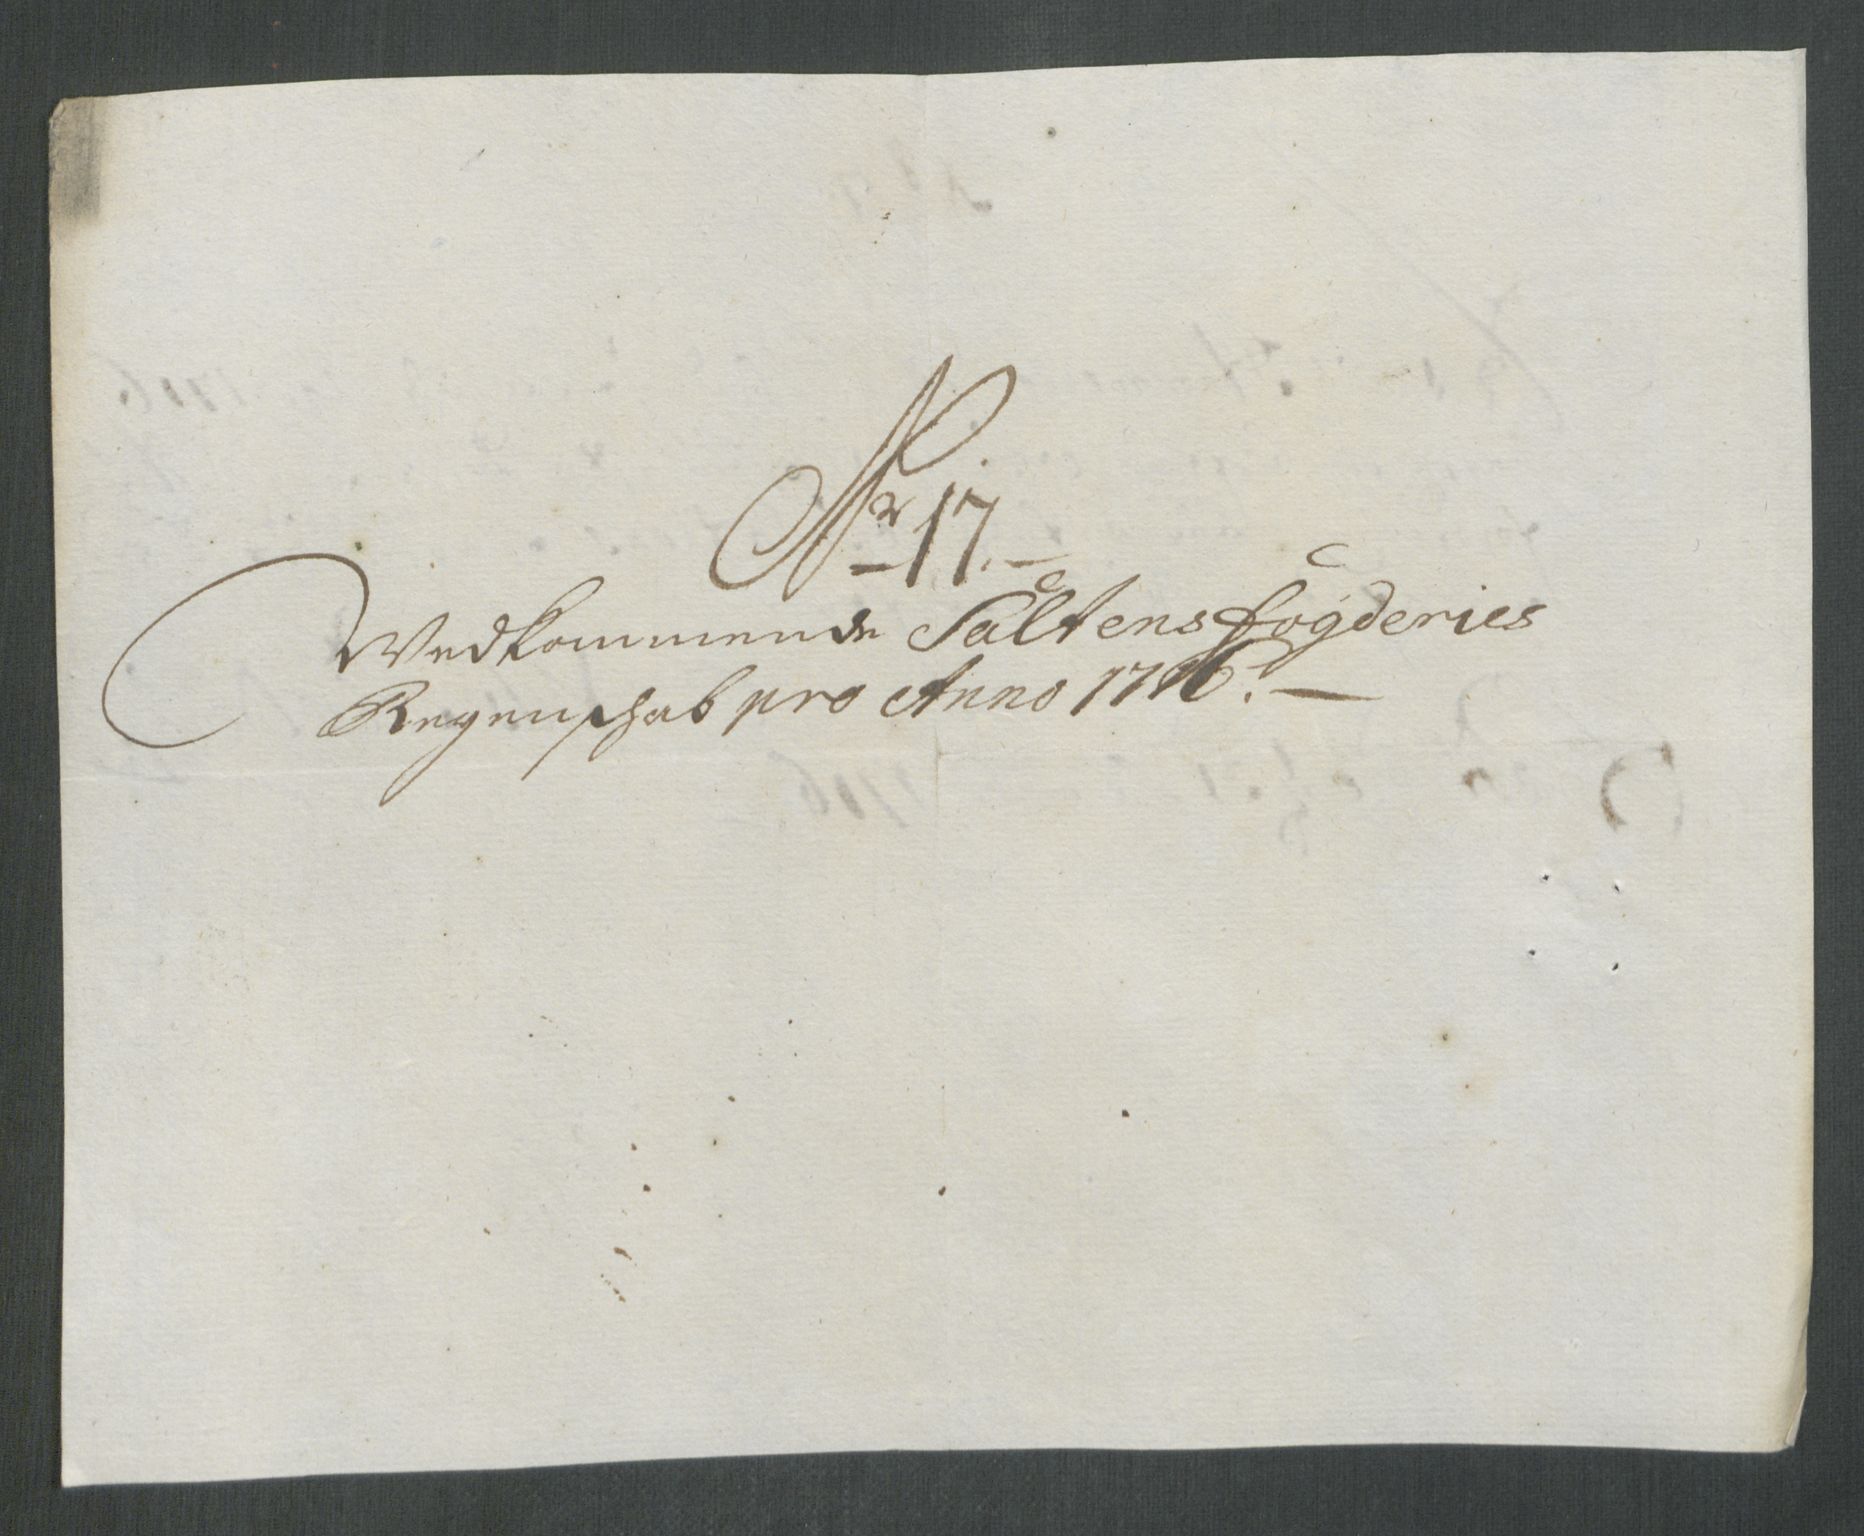 Nr 17.
Vedkommende Saltens fogderies
Regenschab pro Anno 1716.